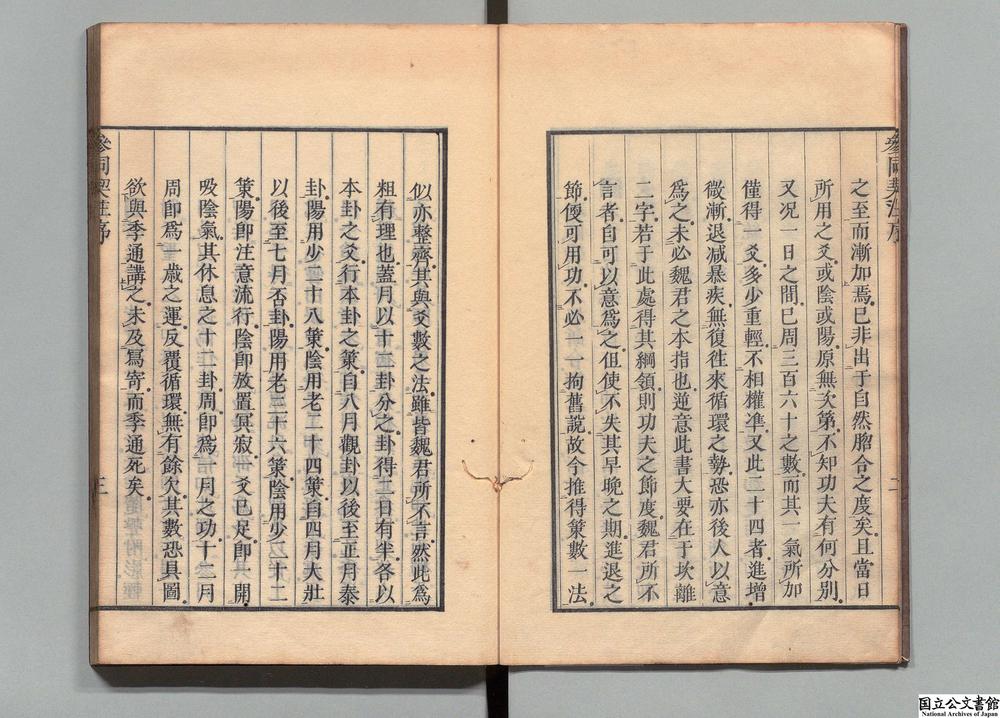 之至而漸加焉已非出于自然脗合之度矣且當日
所用之爻或陰或陽原無次第不知功夫有何分別
又况一日之間已周三百六十之數而其一氣所加
僅得一爻多少重輕不相權凖又此二十四者進增
微漸退减暴疾無復徃來循環之勢恐亦後人以意
爲之未必魏君之本指也逆意此書大要在于坎離
二字若于此處得其綱領則功夫之節度魏君所不
言者自可以意爲之但使不失其早晚之期進退之
節便可用功不必一一拘舊說故今推得䇿數一法
二
參同契注序
似亦整齊其與爻數之法雖皆魏君所不言然此爲
粗有理也蓋月以十二卦分之卦得二日有半各以
本卦之爻行本卦之䇿自八月觀卦以後至正月泰
卦陽用少二十八䇿陰用老二十四䇿自四月大壯
以後至七月否卦陽用老三十六䇿陰用少三十二
䇿陽即注意流行陰即放置冥寂一爻已足即一開
吸陰氣其休息之十二卦周即爲一月之功十二月
周即爲一歲之運反覆循環無有餘欠其數恐具圖
欲與季通講之未及寫寄而季通死矣
參同契注序
三
国立公文書館
National Archives of Japan